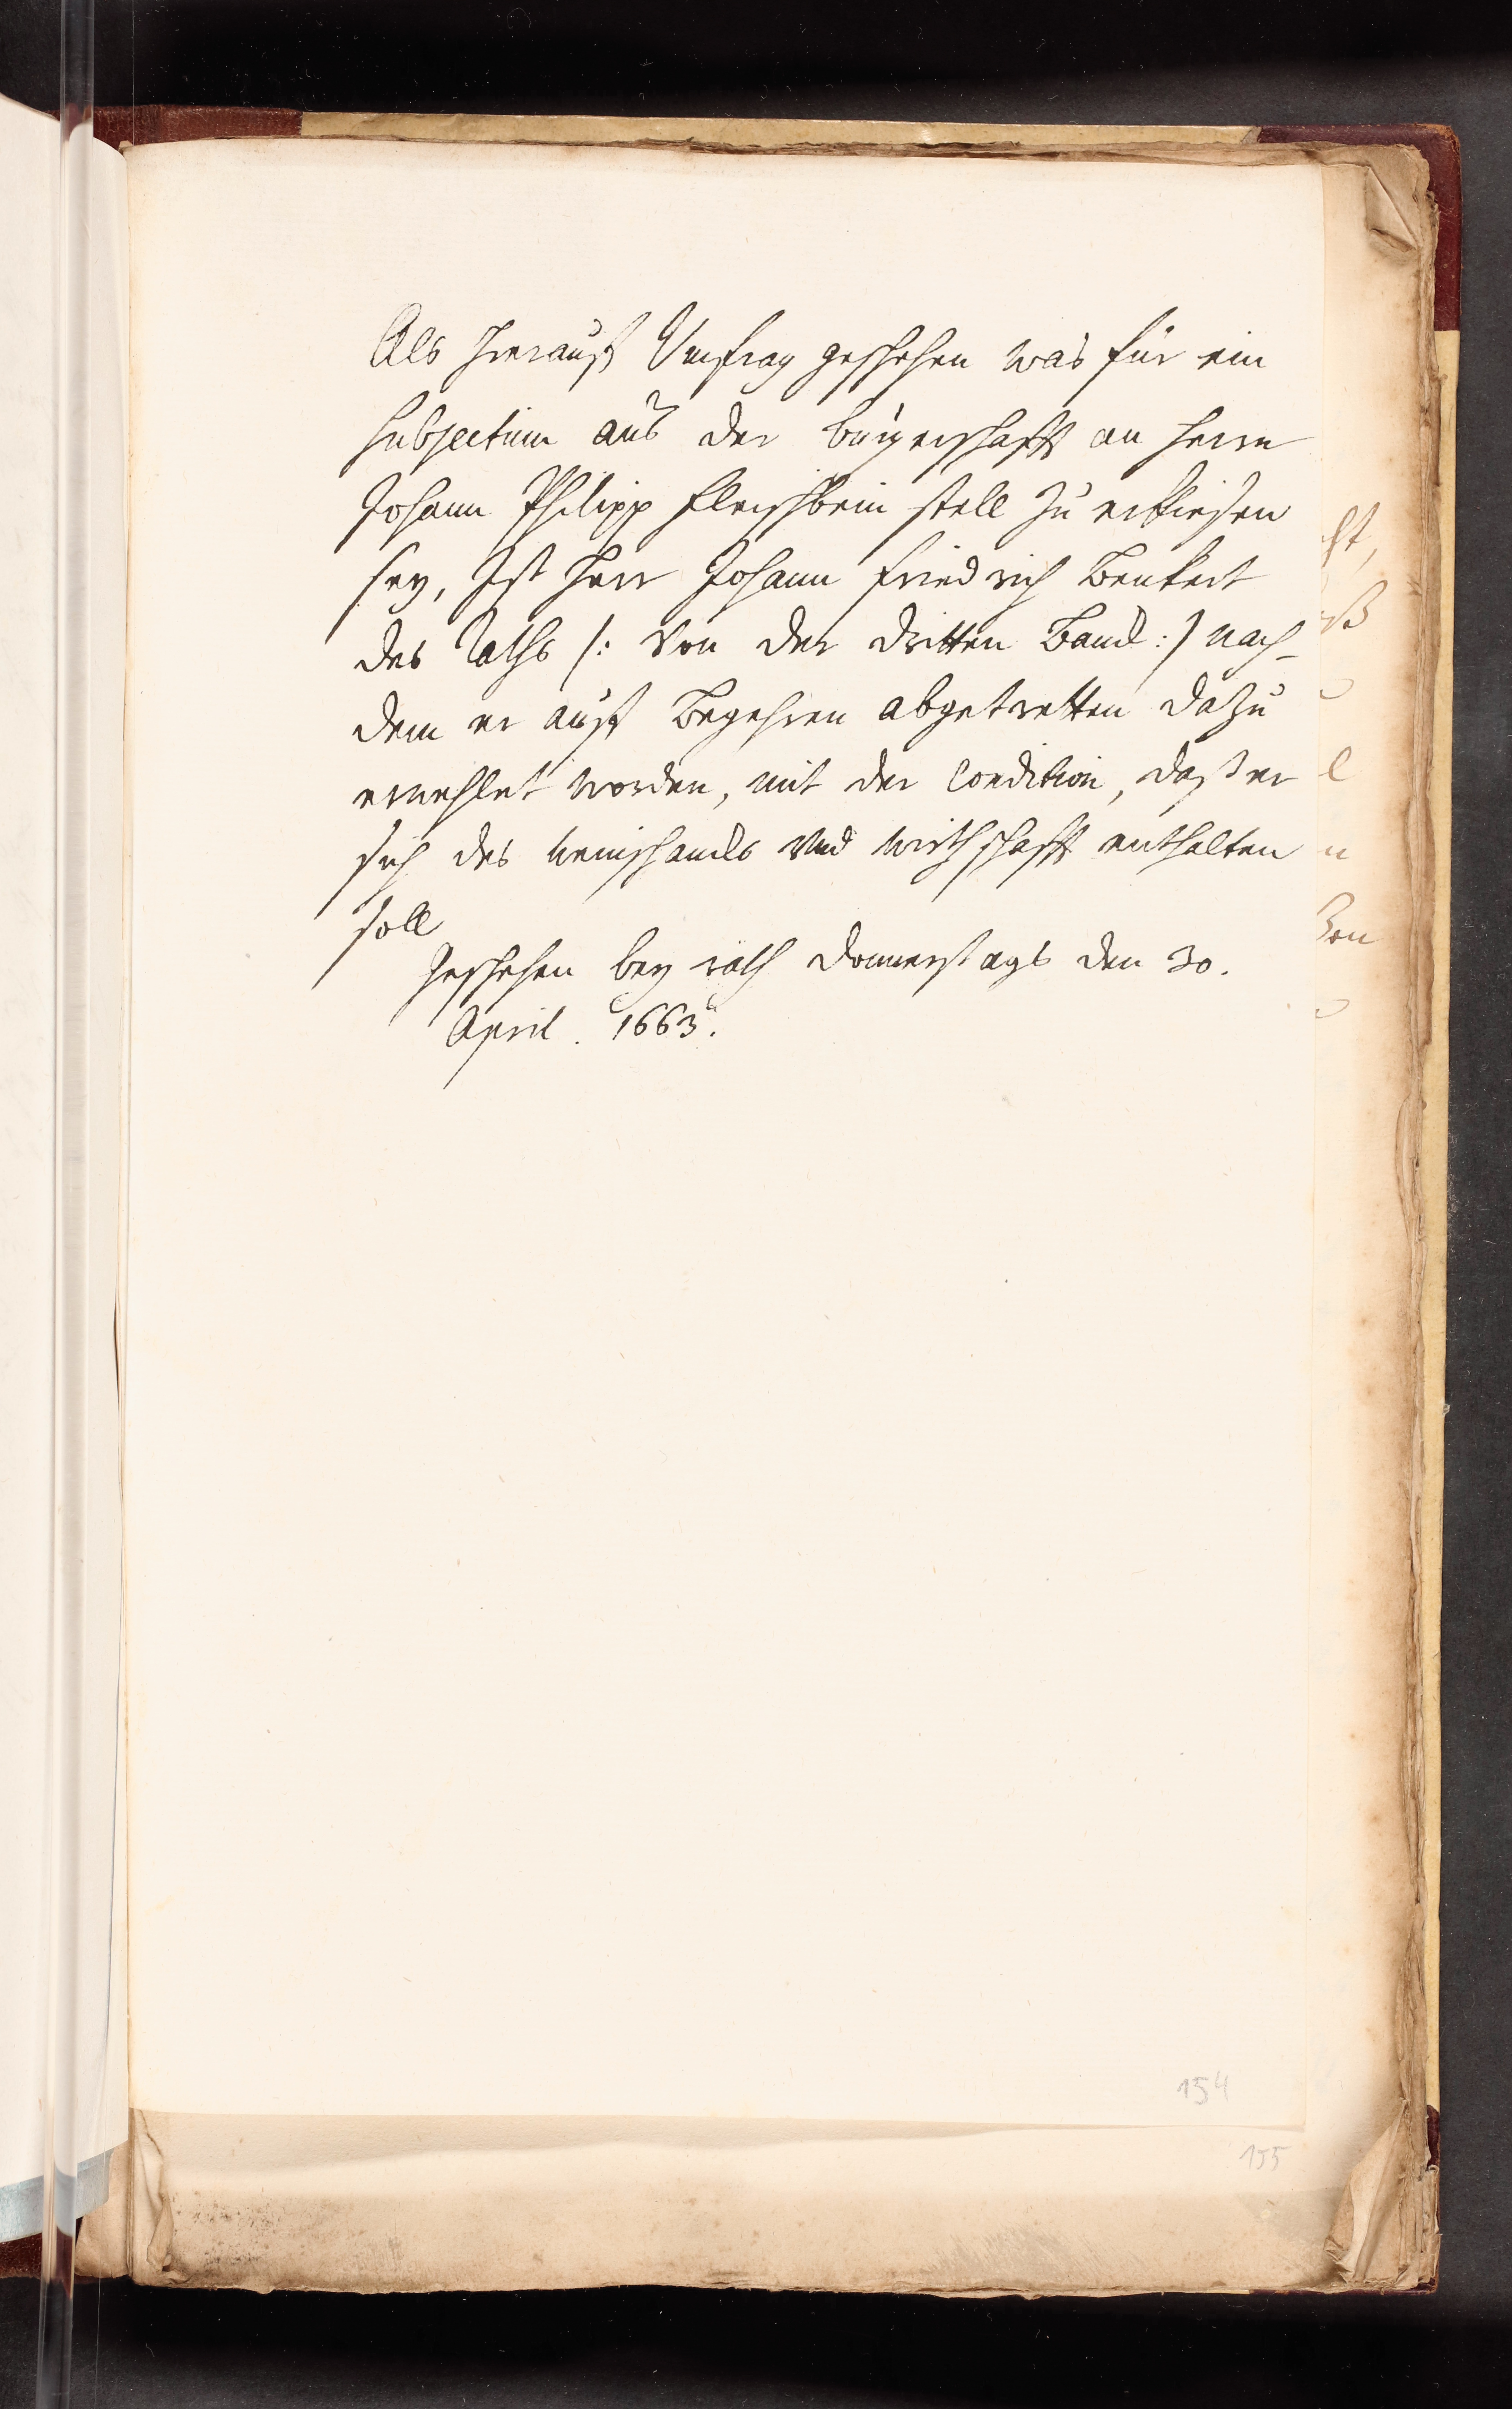 Als hierauff Umfrag geschehen was für ein
subjectum aus der burgerschafft an Herrn
Johann Philipp Fleischbein stell zu erkiesen
sey, Ist Herr Johann Friedrich Benkert
des Raths /: Von der dritten Banck :/ nach-
dem er auff Begehren abgetretten dazu
erwehlet worden, mit der Condition, daß er
sich des weinschancks Und wirthschafft enthalten
soll
Geschehen bey rath Donnerstags den 30.
April. 1663.
154
155